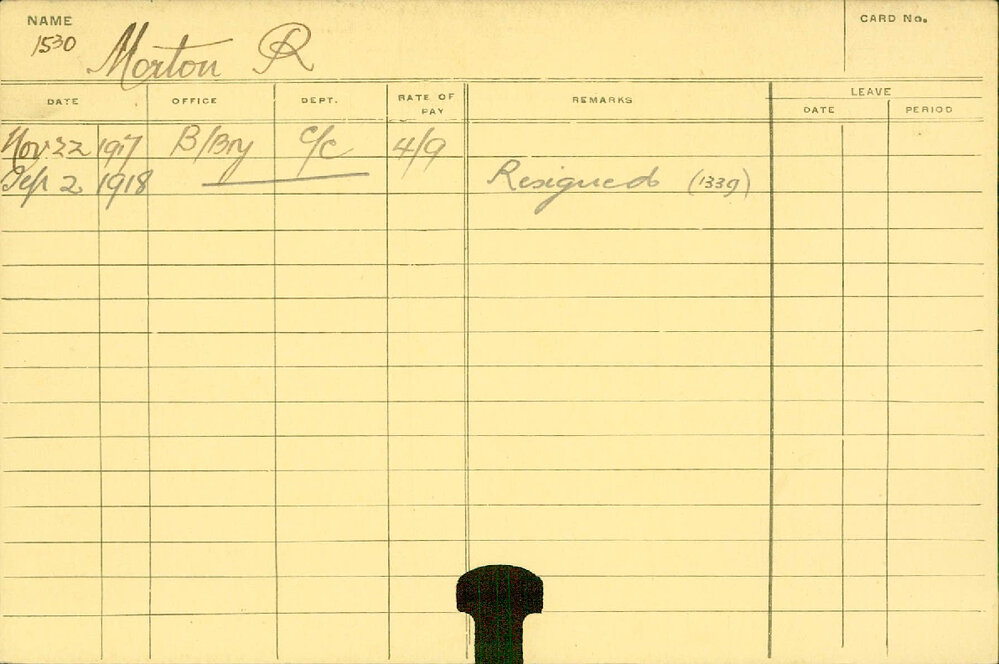 NAME
CARD No.
1530
Morton R
DATE OFFICE DEPT. RATE OF PAY REMARKS LEAVE
DATE PERIOD
Nov 22 1917 B/Bry C/C 4/9
Sep 2 1918 Resigned (1339)